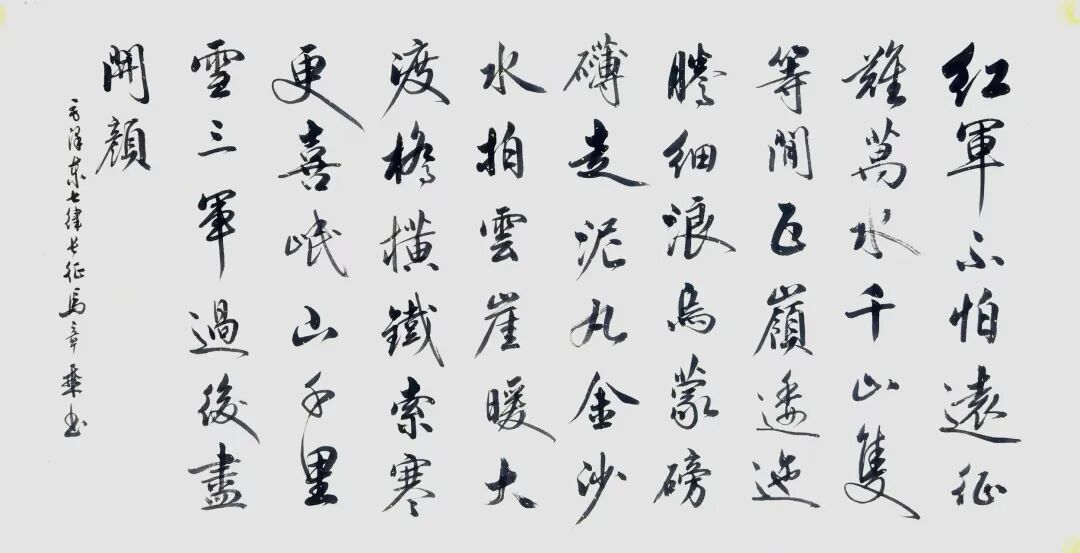 紅軍不怕遠征
難萬水千山隻
等閒五嶺逶迤
騰細浪烏蒙磅
礴走泥丸金沙
水拍雲崖暖大
渡橋橫鐵索寒
更喜岷山千里
雪三軍過後盡
開顏
毛澤東七律長征馬章乘書